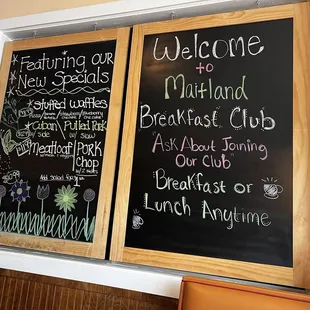 Featuring Our
New Specials
Stuffed Waffles
Cuban Pulled Pork
Meatloaf Pork
Chop
Add Salad for
Welcome
to
Maitland
Breakfast Club
"Ask About Joining
Our Club"
Breakfast or
Lunch Anytime